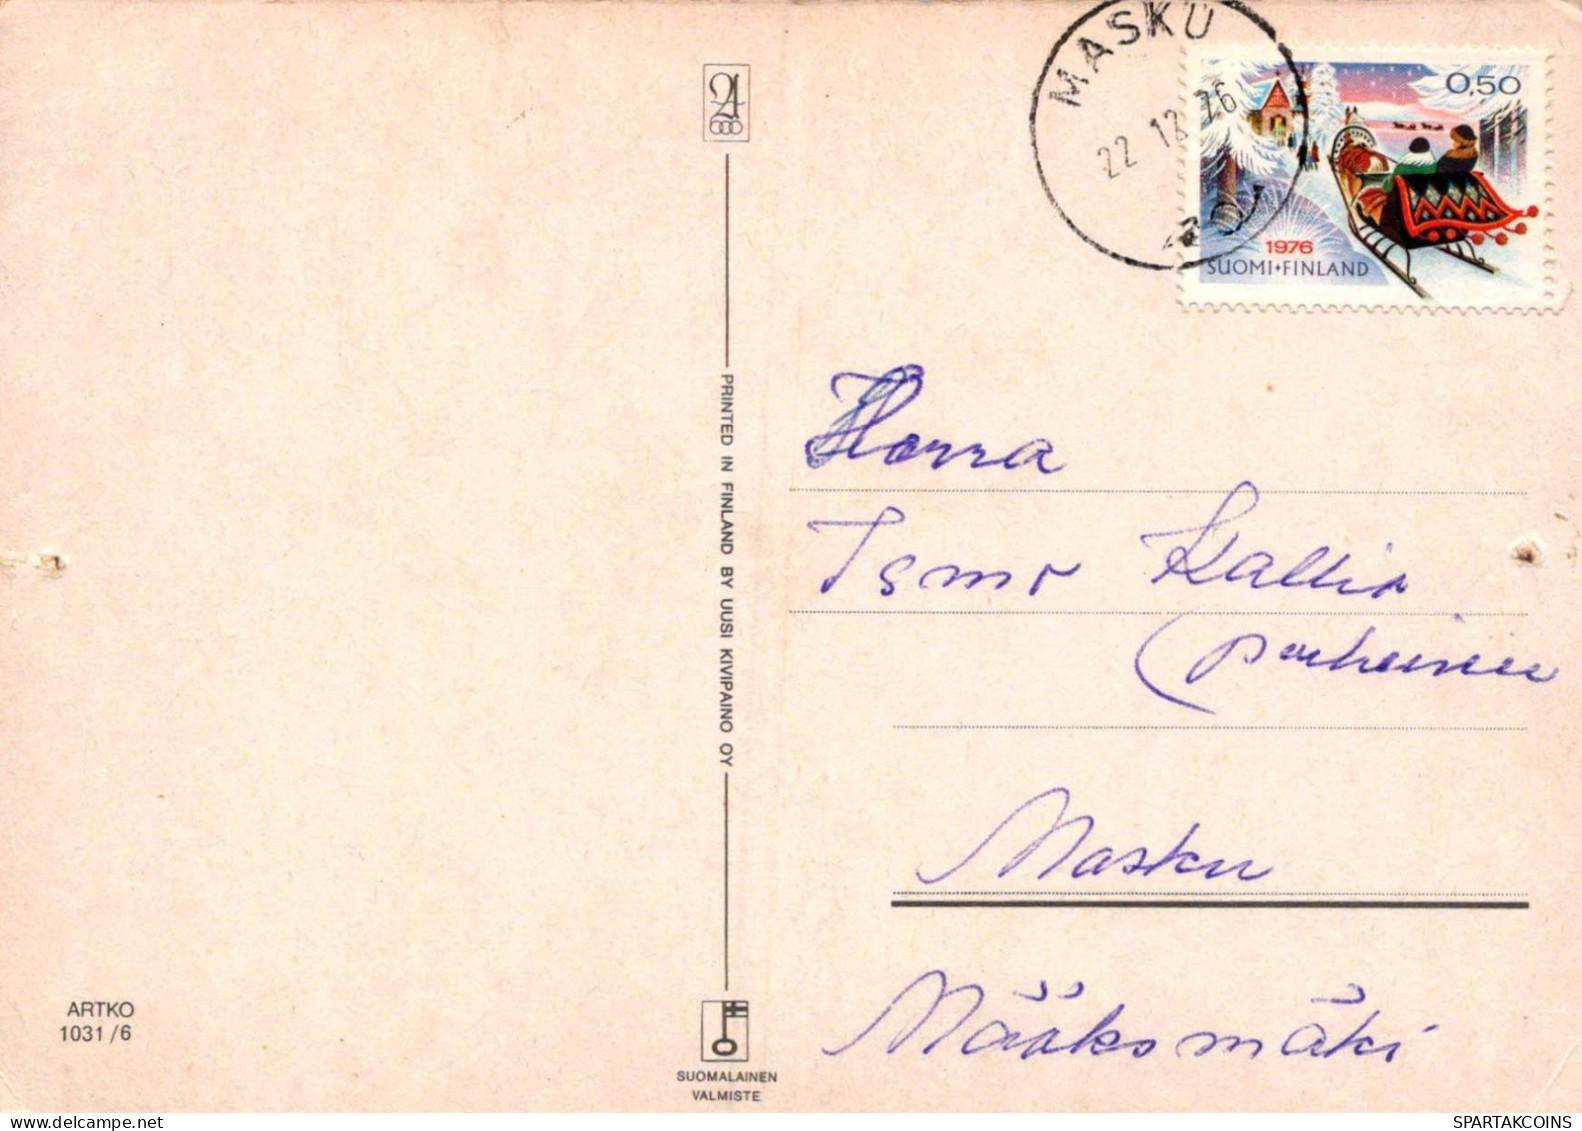 MASKU
22.12.76
0,50
1976
SUOMI•FINLAND
PRINTED IN FINLAND BY UUSI KIVIPAINO OY
Herra
Ismo Kallio
perheineen
Masku
Määksmäki
ARTKO
1031/6
SUOMALAINEN
VALMISTE
SPARTAKCOINS.COM